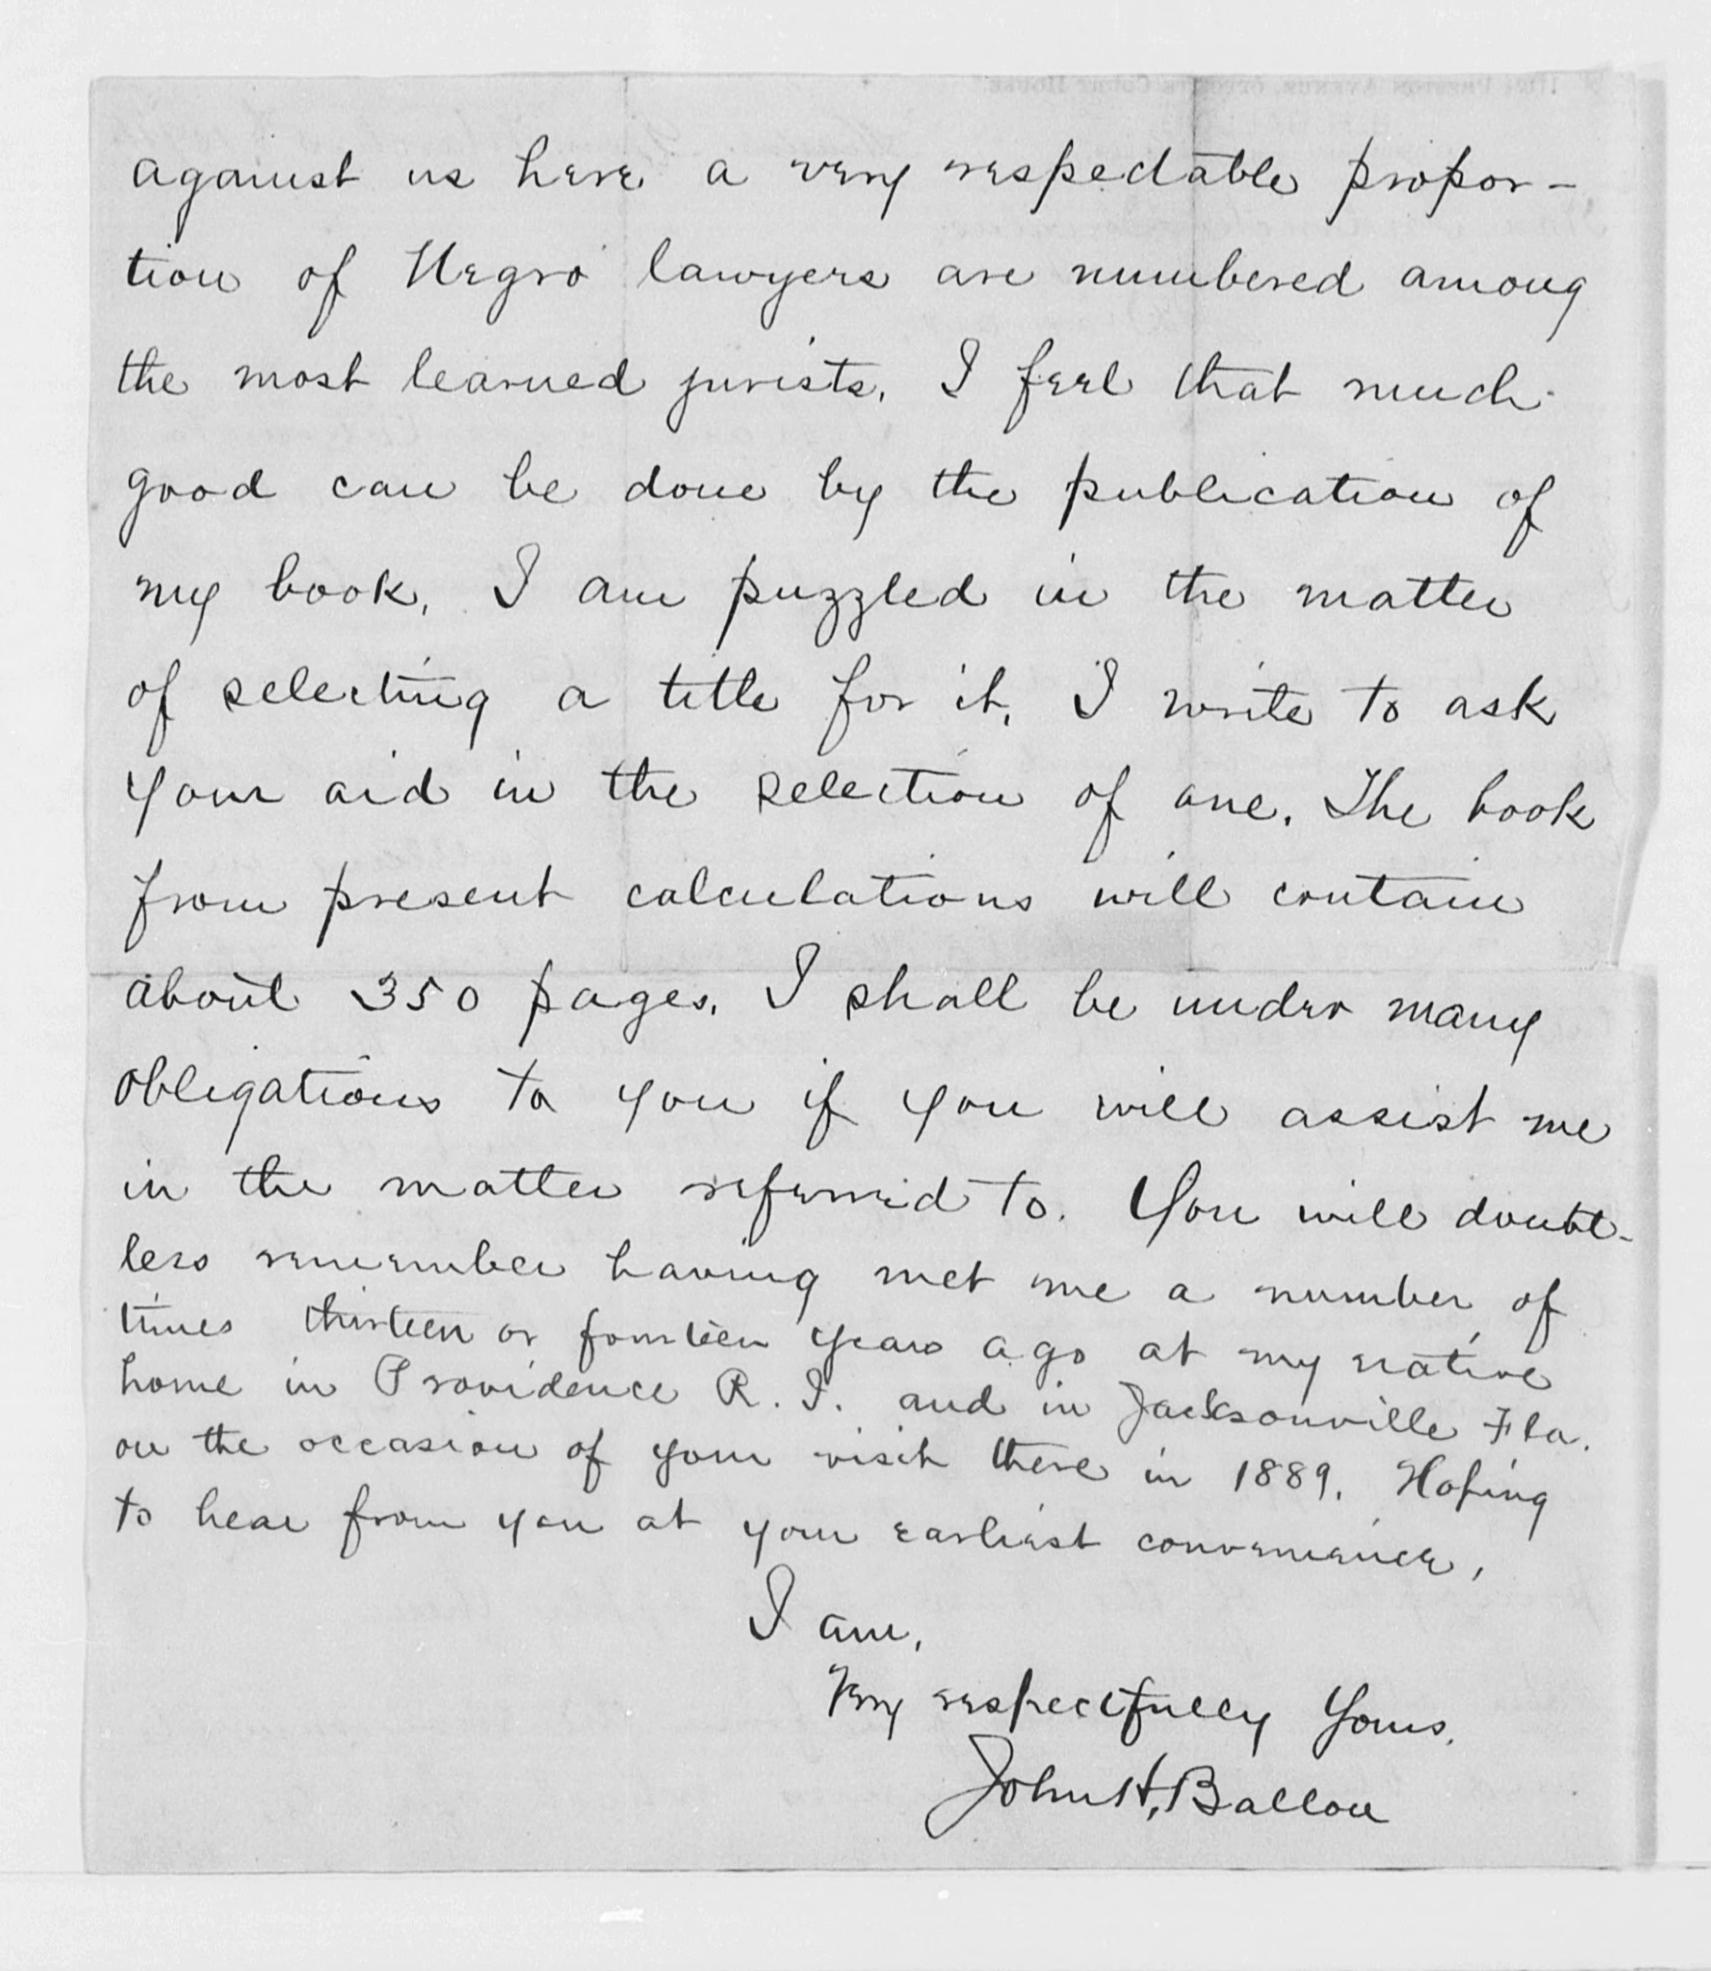 against us here a very respectable propor-
tion of Negro lawyers are numbered among
the most learned jurists. I feel that much
good can be done by the publication of
my book. I am puzzled in the matter
of selecting a title for it. I write to ask
your aid in the selection of one. The book
from present calculations will contain
about 350 pages. I shall be under many
obligations to you if you will assist me
in the matter referred to. You will doubt-
less remember having met me a number of
times thirteen or fourteen years ago at my native
home in Providence R. I. and in Jacksonville Fla.
on the occasion of your visit there in 1889. Hoping
to hear from you at your earliest convenience,
I am,
Very respectfully Yours,
John H. Ballou